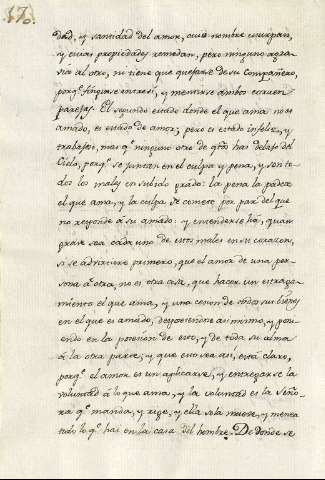 176.
dad, y santidad del amor, cuio nombre usurpan,
y cuias propiedades remedan; pero ninguno agra-
via al otro, ni tiene que quejarse de su compañero,
porq.e fingirse entre sí, y mentirse ambos corren
parejas. El segundo estado donde el que ama no es
amado, es estado de amor; pero es estado infeliz, y
trabajoso, mas q.e ninguno otro de q.tos hai debajo del
Cielo, porq.e se juntan en el culpa y pena, y son to-
dos los males en subido grado: la pena la padece
el que ama, y la culpa se comete por par.te del que
no responde a su amado: y entenderse ha, quan
grave sea cada uno de estos males en su corazon,
si se advirtiere primero, que el amor de una per-
sona á otra, no es otra cosa, que hacer un entrega-
miento el que ama, y una cesion de todos sus bienes
en el que es amado, desposeiendose asi mismo, y poni-
endo en la posesion de esto, y de toda su alma
á la otra parte; y que esto sea asi, está claro,
porq.e el amor es un aplicarse, y entregarse la
voluntad á lo que ama, y la voluntad es la Seño-
ra q.e manda, y rige, y ella sola mueve, y menea
todo lo q.e hai en la casa del hombre. De donde se